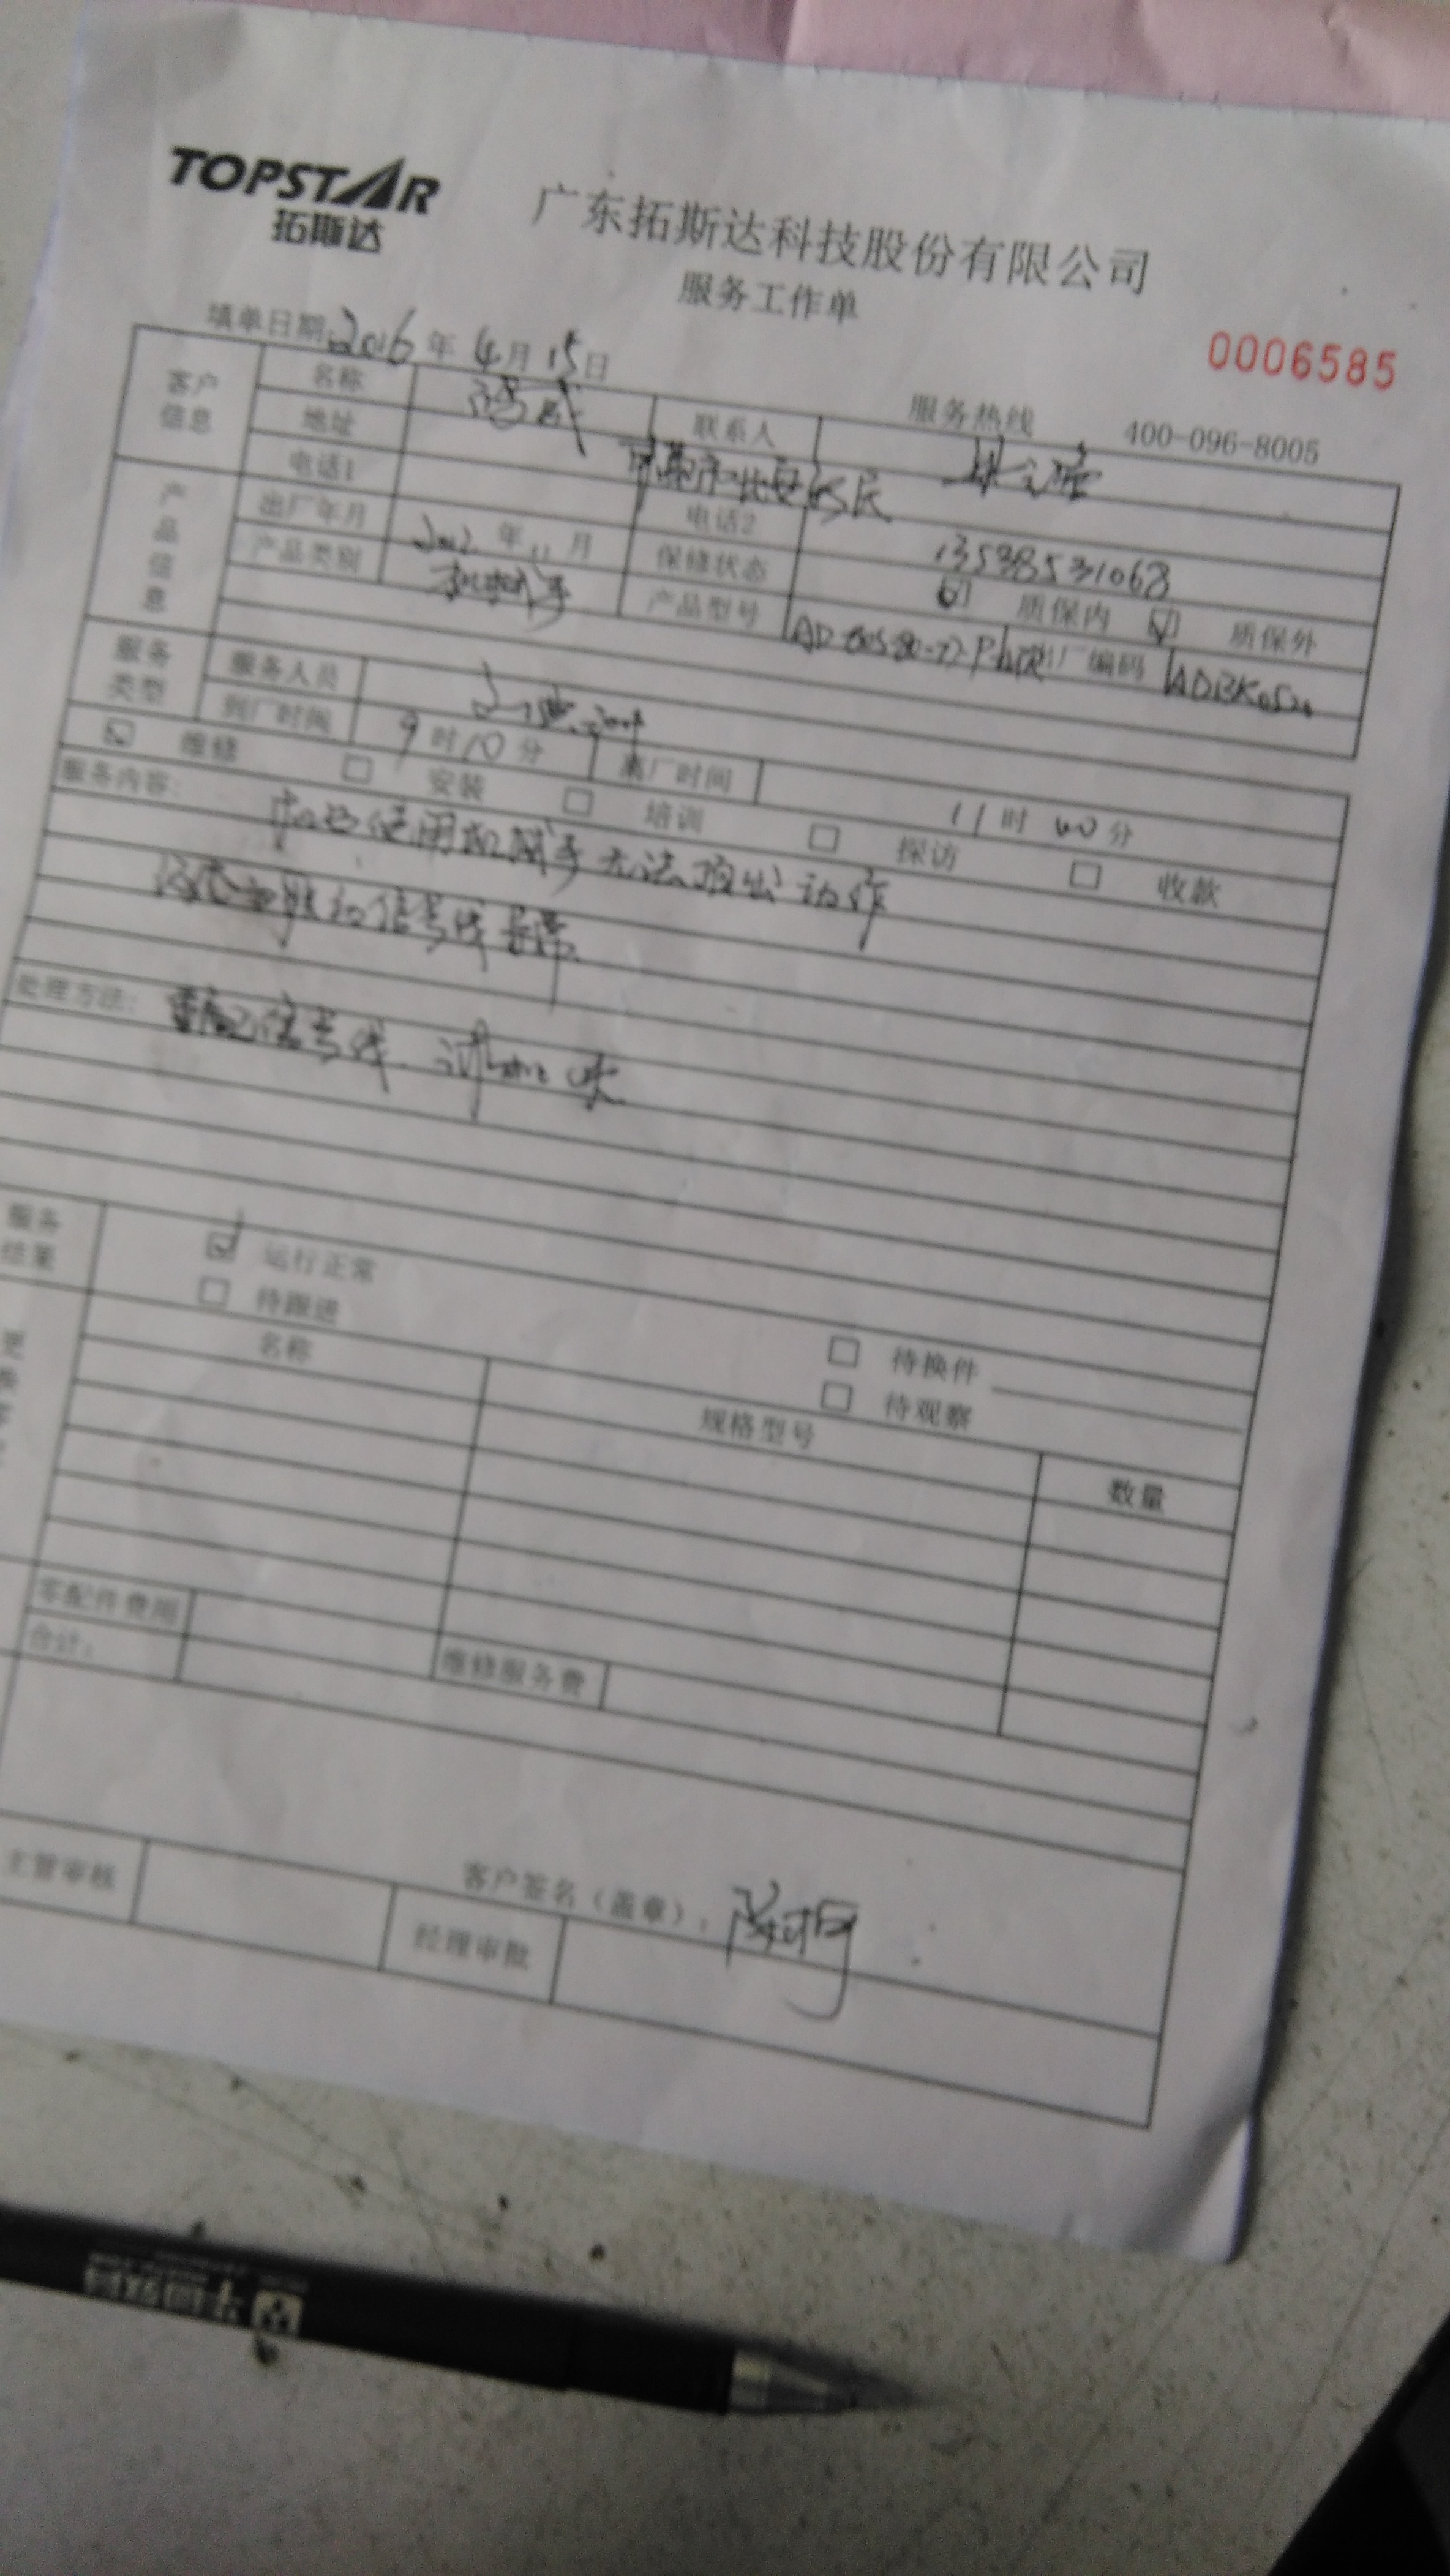 TOPSTAR
拓斯达
广东拓斯达科技股份有限公司
服务工作单
0006585
填单日期:2016年4月15日
服务热线 400-096-8005
客户信息 名称 联系人
地址
电话1 电话2 13538531068
产品信息 出厂年月 2012年11月 保修状态 质保内 质保外
产品类别 机械手 产品型号 出厂编码
服务类型 服务人员
到厂时间 9时10分 离厂时间 11时40分
维修 安装 培训 探访 收款
服务内容: 使用机械手无法顶出动作
信号线异常
处理方法: 信号线
服务结果 运行正常 待换件
待跟进 待观察
名称 规格型号 数量
零配件费用 维修服务费
合计:
客户签名(盖章):
主管审核 经理审批